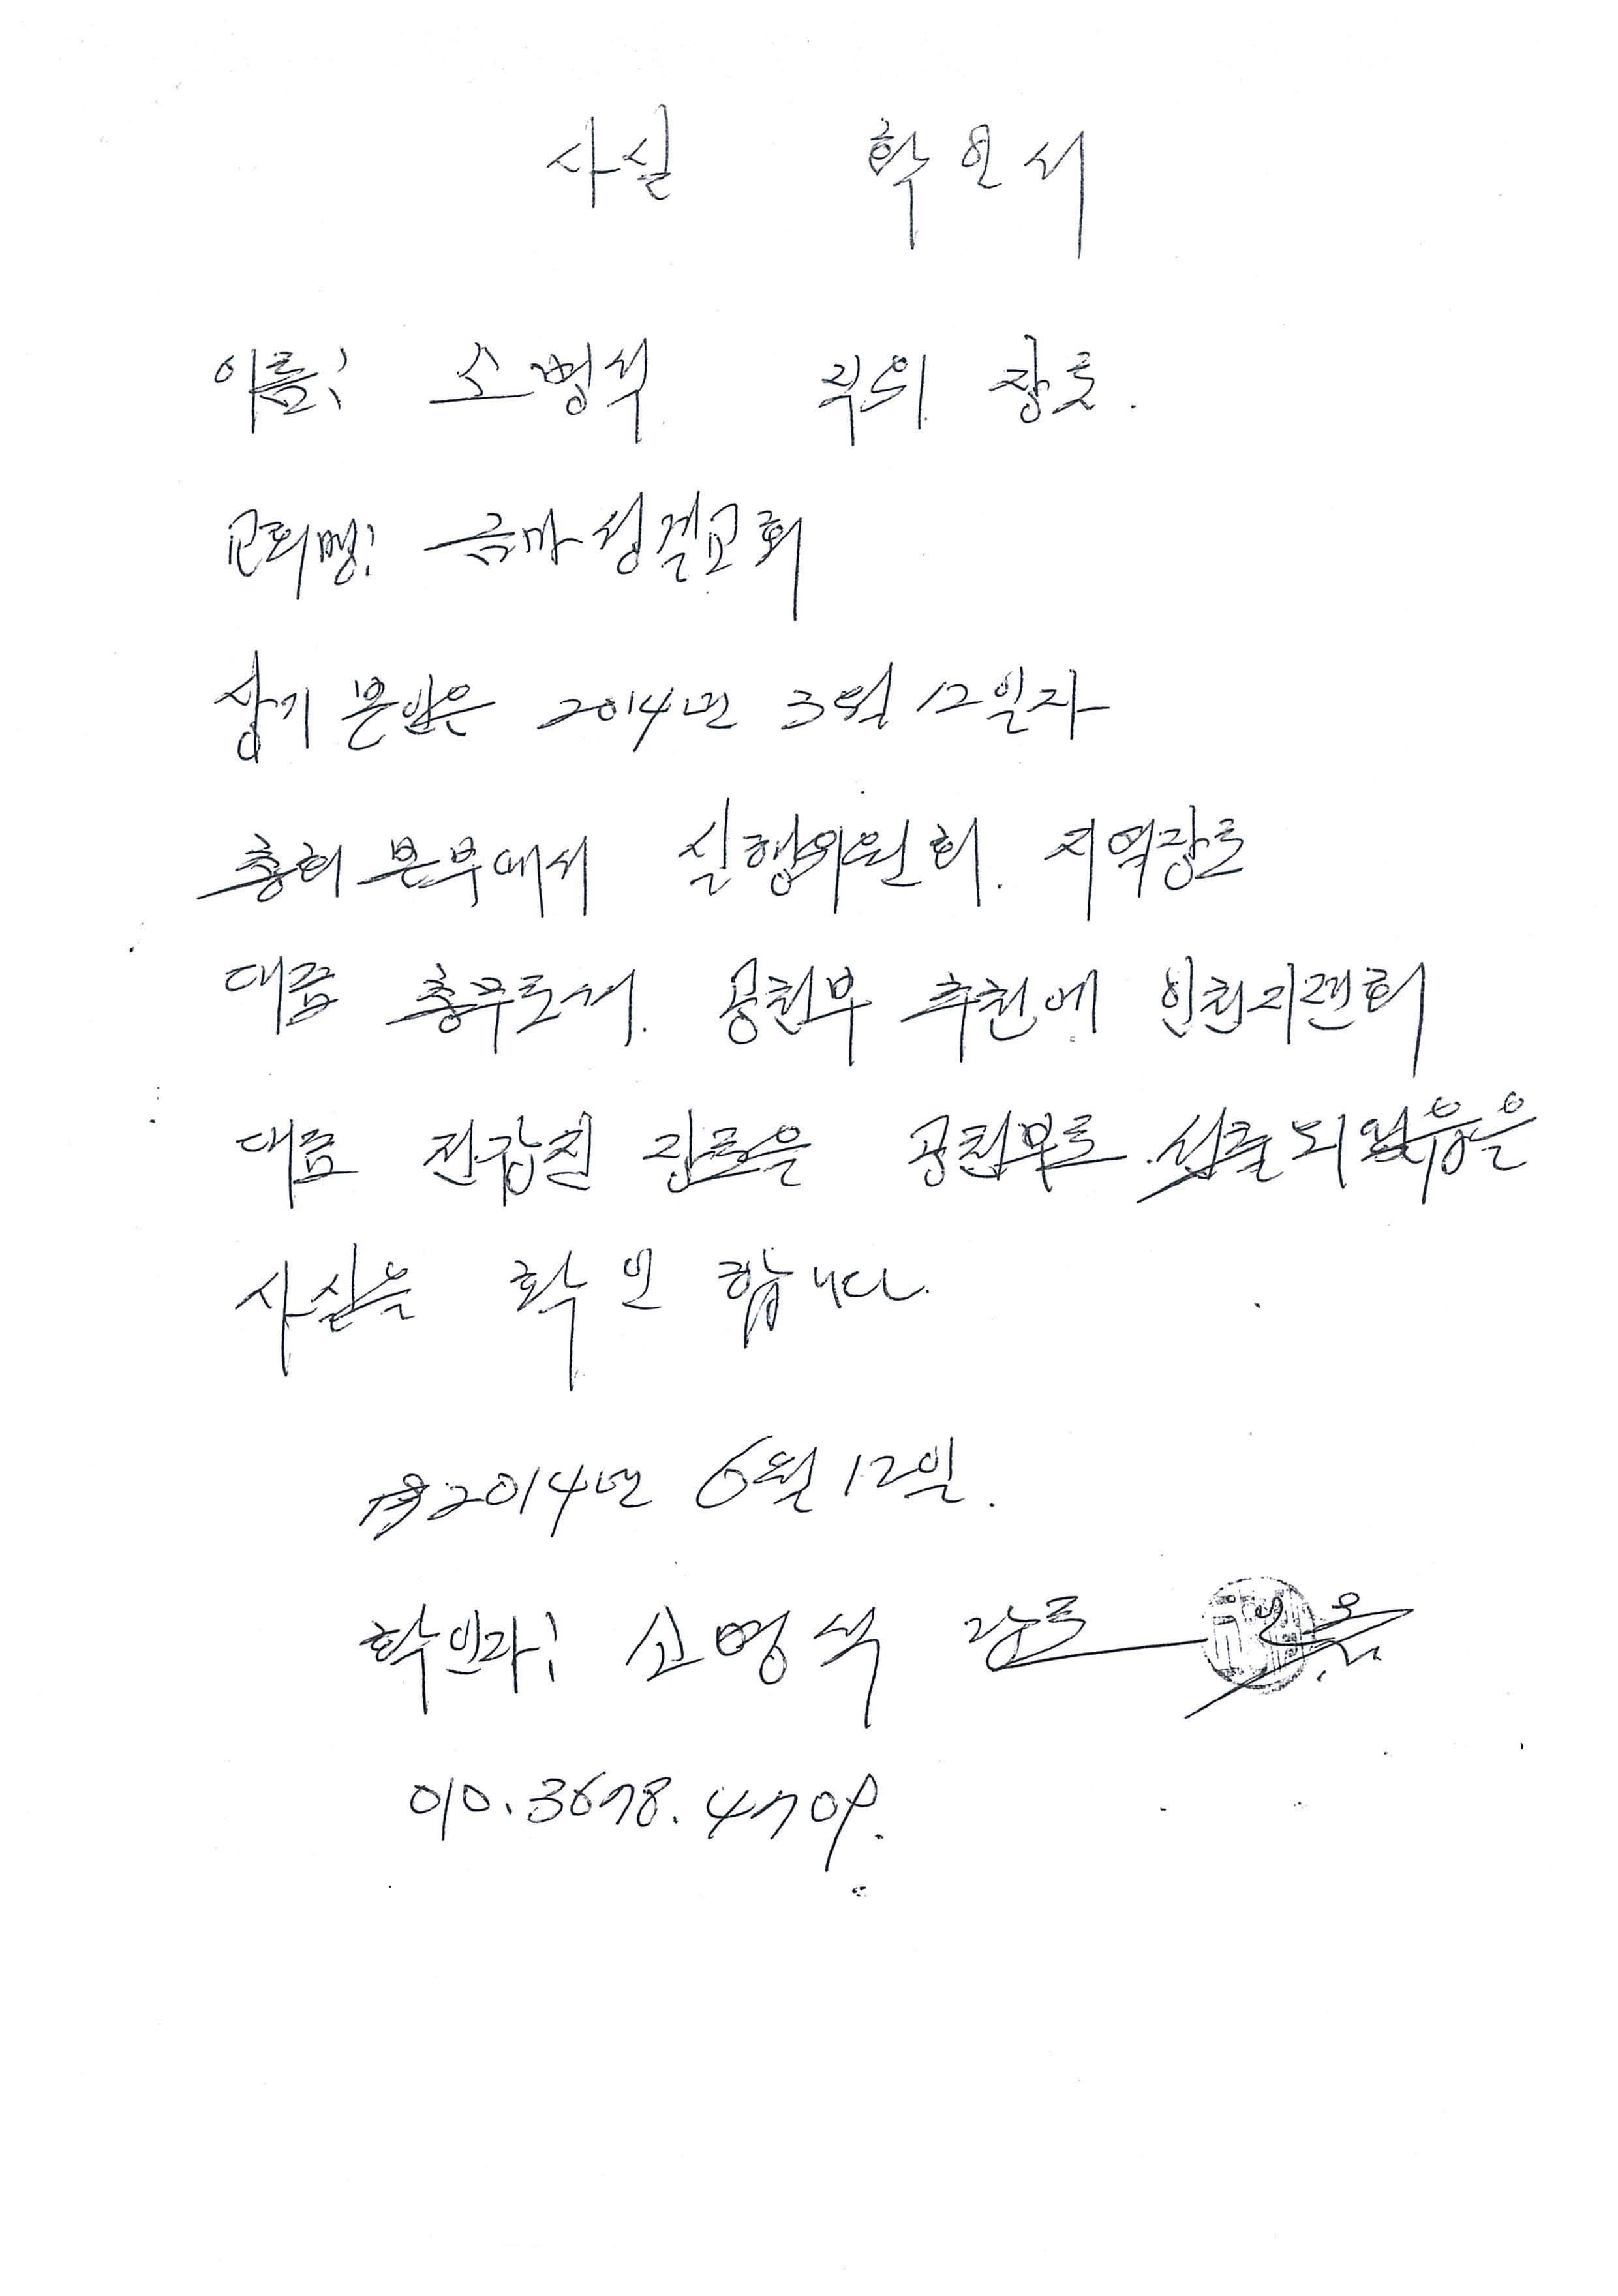 사실 확인서
이름: 소명석 직위 장로.
교회명: 금마성결교회
상기 본인은 2014년 3월 12일자
총회 본부에서 실행위원회. 지역장로
대표 총무로써. 공천부 추천에 인천지련회
대표 전갑진 장로은 공천부로 선출되었음은
사실을 확인 합니다.
2014년 6월 12일.
확인자: 소명석 장로
010.3678.4709.